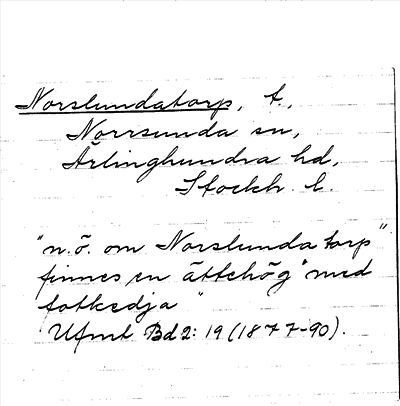 Norslundatorp, t.,
Norrsunda sn,
Ärlinghundra hd,
Stockh. l.
"n.ö. om Norslunda torp"
finnes en ättehög "med
fotkedja"
Ufmt Bd 2: 19 (1877-90).